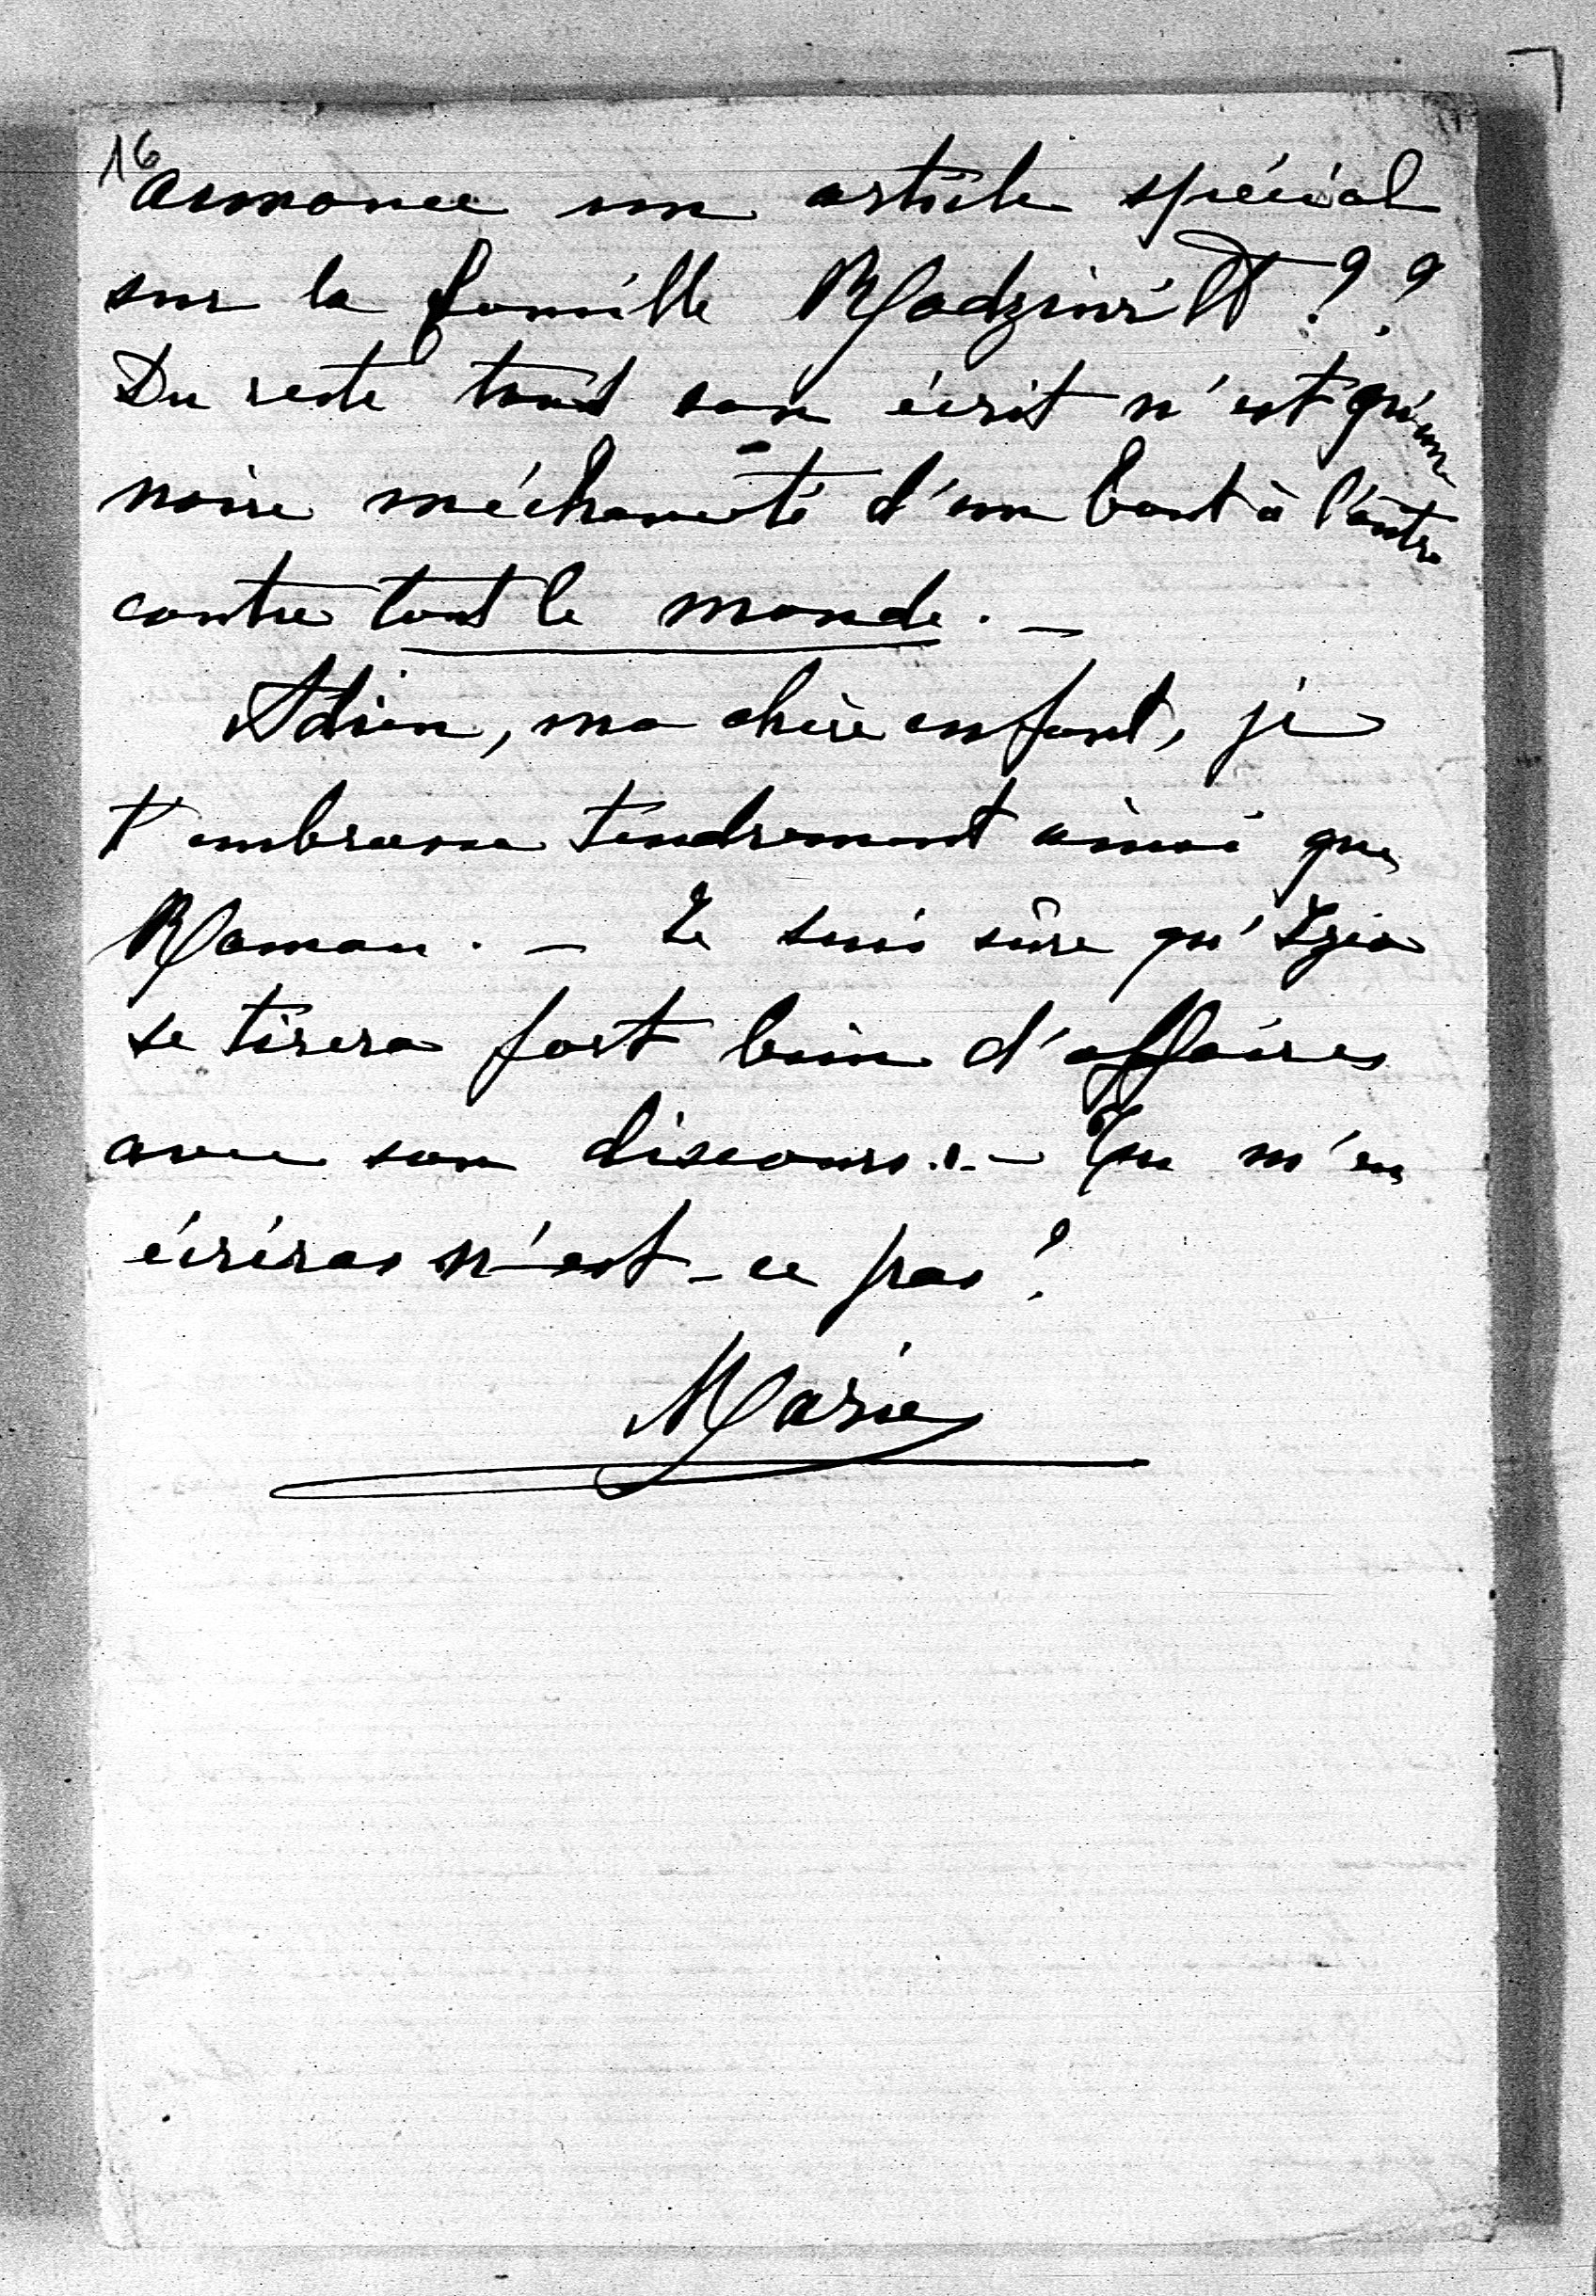 16
annonce un article spécial
sur la famille Radziwill ??
Du reste tout son écrit n'est qu'une
noire méchanceté d'un bout à l'autre
contre tout le monde. —
Adieu, ma chère enfant, je
t'embrasse tendrement ainsi que
Maman. — Je suis sûre qu'Izia
se tirera fort bien d'affaires
avec son discours. — Tu m'en
écriras n'est-ce pas?
Marie